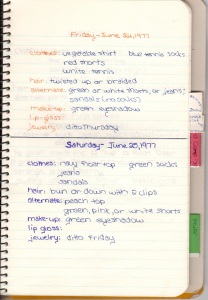 Friday - June 24, 1977
clothes: vegetable shirt blue tennis socks
red shorts
white tennis
hair: twisted up or braided
alternate: green or white shorts, or jeans;
sandals (no socks)
make-up: green eyeshadow
lip gloss:
jewelry: dito Thursday
Saturday - June 25, 1977
clothes: navy floor top green socks
jeans
sandals
hair: bun or down with 2 clips
alternate: peach top
green, pink, or white shorts
make-up: green eyeshadow
lip gloss:
jewelry: dito Friday